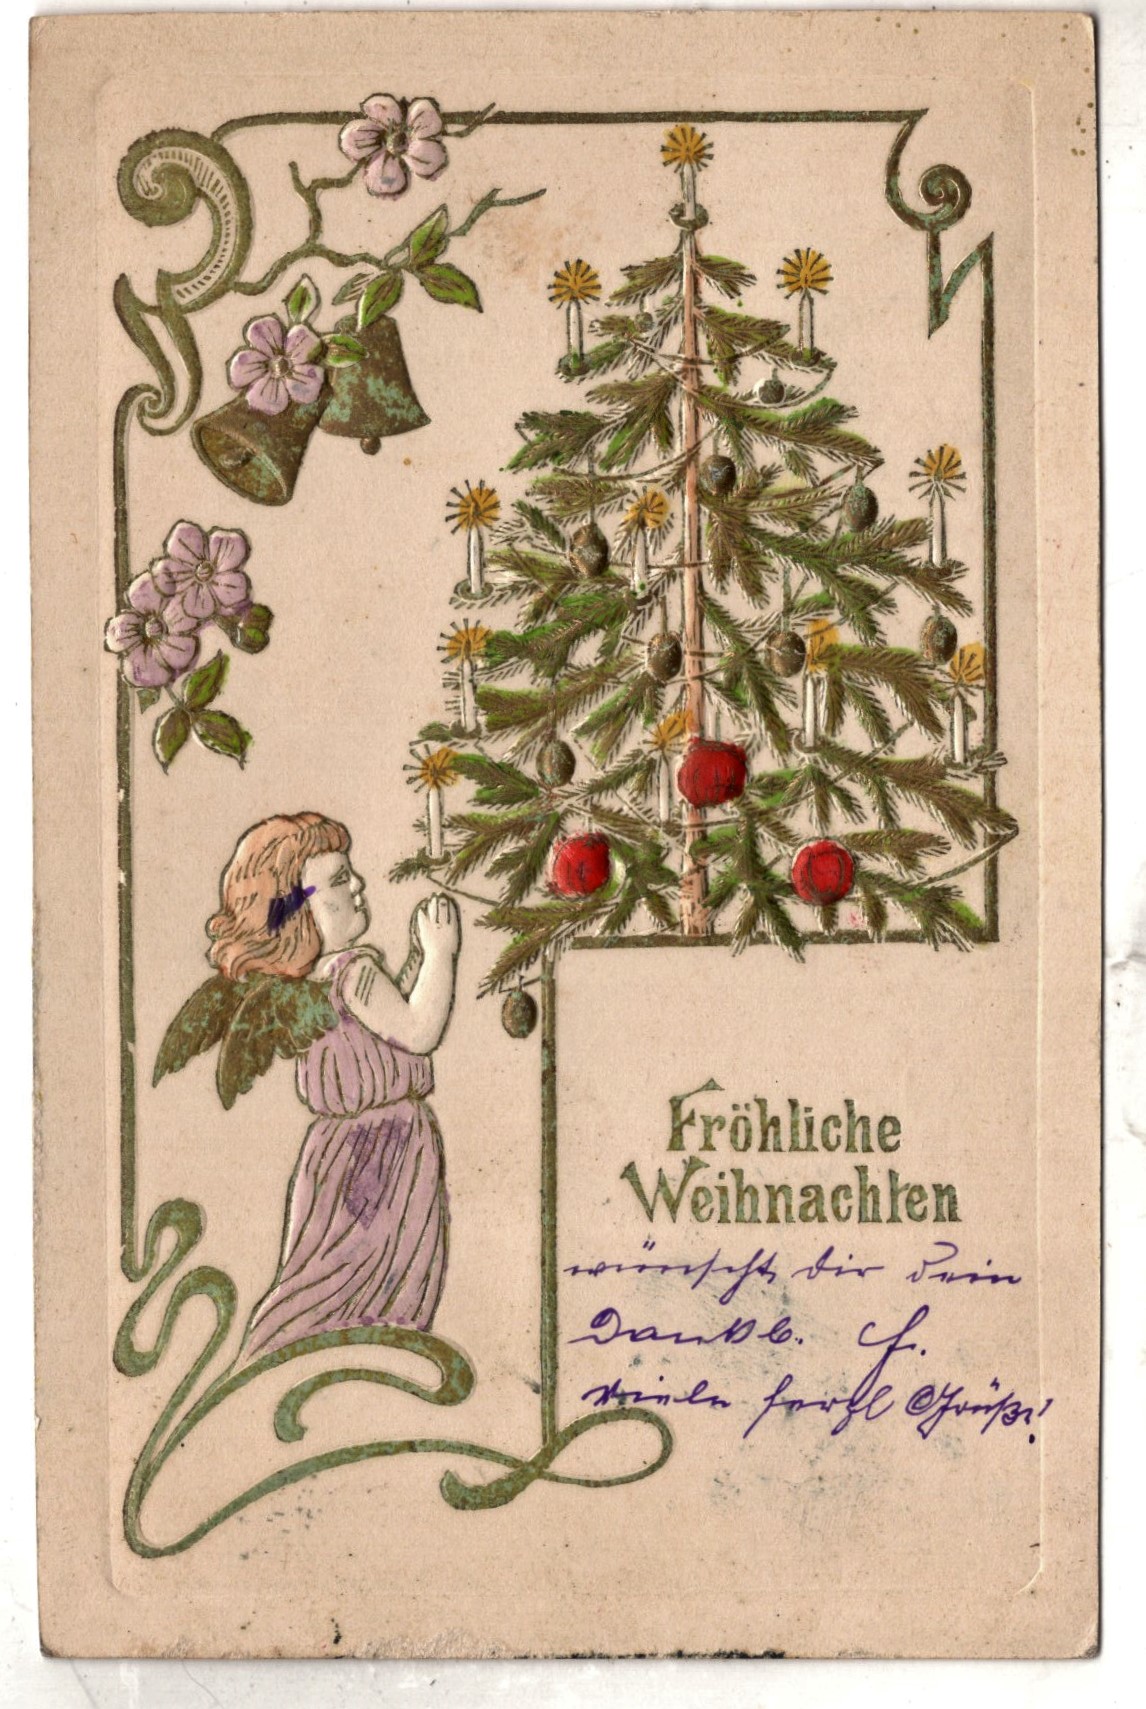 Fröhliche
Weihnachten
wünscht dir dein
Dankb. F.
Viele herzl Grüße!